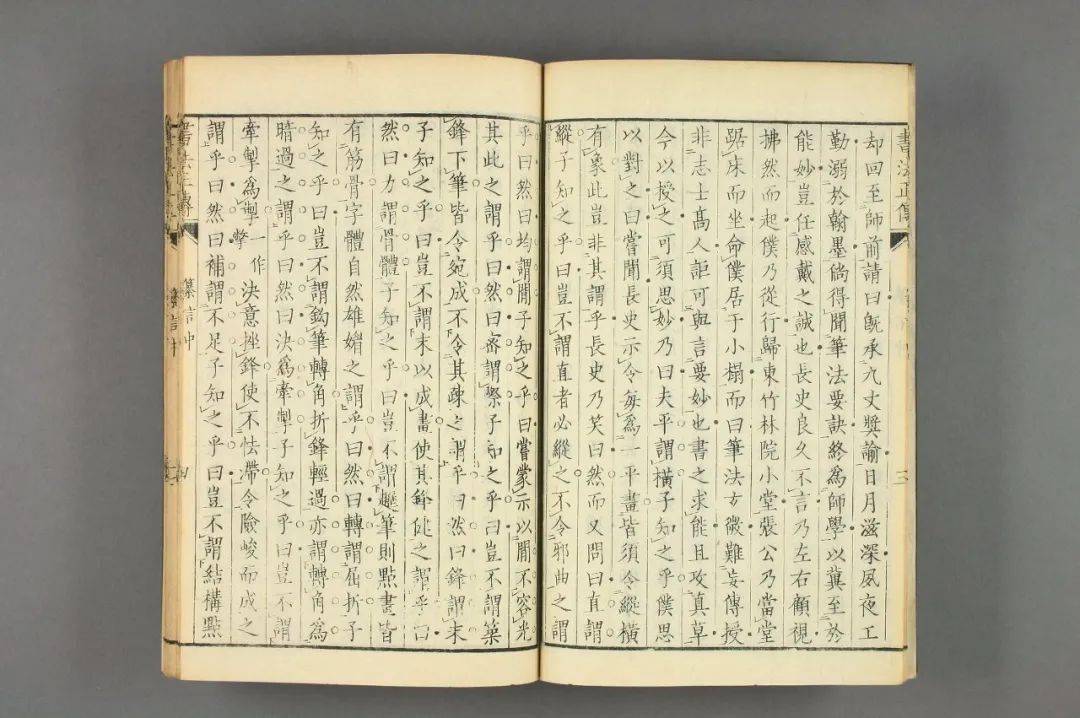 書法正傳
却回至師前請曰旣承九丈獎諭日月滋深夙夜工
勤溺於翰墨倘得聞筆法要訣終爲師學以冀至於
能妙豈任感戴之誠也長史良久不言乃左右顧視
拂然而起僕乃從行歸東竹林院小堂張公乃當堂
踞床而坐命僕居于小榻而曰筆法玄微難妄傳授
非志士高人詎可與言要妙也書之求能且攻真草
今以授之可須思妙乃曰夫平謂橫子知之乎僕思
以對之曰嘗聞長史示令每爲一平畫皆須令縱橫
有象此豈非其謂乎長史乃笑曰然而又問曰直謂
縱子知之乎曰豈不謂直者必縱之不令邪曲之謂
乎曰然曰均謂間子知之乎曰嘗蒙示以間不容光
其此之謂乎曰然曰密謂際子知之乎曰豈不謂築
鋒下筆皆令宛成不令其疎之謂乎曰然曰鋒謂末
子知之乎曰豈不謂末以成畫使其鋒健之謂乎曰
然曰力謂骨體子知之乎曰豈不謂趯筆則點畫皆
有筋骨字體自然雄媚之謂乎曰然曰轉謂屈折子
知之乎曰豈不謂鈎筆轉角折鋒輕過亦謂轉角爲
暗過之謂乎曰然曰決爲牽掣子知之乎曰豈不謂
牽掣爲掣一作撆決意挫鋒使不怯滯令險峻而成之
謂乎曰然曰補謂不足子知之乎曰豈不謂結構點
書法正傳
纂言中